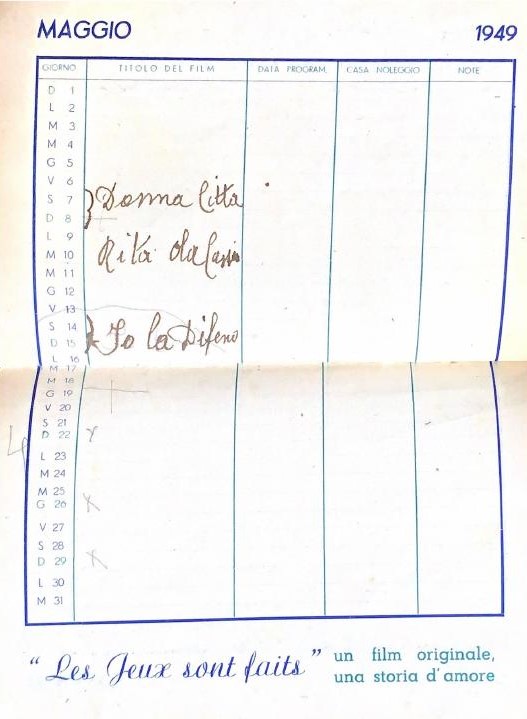 MAGGIO 1949
GIORNO TITOLO DEL FILM DATA PROGRAM. CASA NOLEGGIO NOTE
D 1
L 2
M 3
M 4
G 5
V 6
S 7 Donna Città
D 8
L 9
M 10 Rita da Cassia
M 11
G 12
V 13
S 14 Io la Difeno
D 15
L 16
M 17
M 18
G 19
V 20
S 21
D 22
L 23
M 24
M 25
G 26
V 27
S 28
D 29
L 30
M 31
"Les Jeux sont faits" un film originale,
una storia d'amore